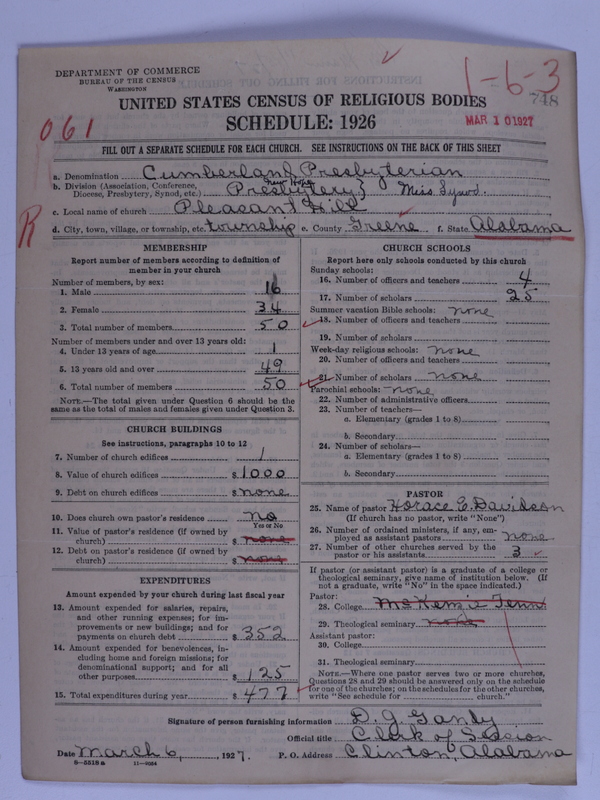 DEPARTMENT OF COMMERCE
BUREAU OF THE CENSUS
WASHINGTON
1-6-3
748
UNITED STATES CENSUS OF RELIGIOUS BODIES
SCHEDULE: 1926
MAR 10 1927
061
FILL OUT A SEPARATE SCHEDULE FOR EACH CHURCH. SEE INSTRUCTIONS ON THE BACK OF THIS SHEET
a. Denomination Cumberland Presbyterian
b. Division (Association, Conference, Diocese, Presbytery, Synod, etc.) New Hope Presbytery} Miss Synod.
c. Local name of church Pleasant Hill
d. City, town, village, or township, etc. township e. County Greene f. State Alabama
R
MEMBERSHIP
Report number of members according to definition of
member in your church
Number of members, by sex:
1. Male 16
2. Female 34
3. Total number of members 50
Number of members under and over 13 years old:
4. Under 13 years of age 1
5. 13 years old and over 49
6. Total number of members 50
NOTE.—The total given under Question 6 should be the
same as the total of males and females given under Question 3.
CHURCH BUILDINGS
See instructions, paragraphs 10 to 12
7. Number of church edifices 1
8. Value of church edifices $1000
9. Debt on church edifices $none
10. Does church own pastor's residence no
Yes or No
11. Value of pastor's residence (if owned by
church) $none
12. Debt on pastor's residence (if owned by
church) $none
EXPENDITURES
Amount expended by your church during last fiscal year
13. Amount expended for salaries, repairs,
and other running expenses; for im-
provements or new buildings; and for
payments on church debt $352
14. Amount expended for benevolences, in-
cluding home and foreign missions; for
denominational support; and for all
other purposes $125
15. Total expenditures during year $477
CHURCH SCHOOLS
Report here only schools conducted by this church
Sunday schools:
16. Number of officers and teachers 4
17. Number of scholars 25
Summer vacation Bible schools: none
18. Number of officers and teachers
19. Number of scholars
Week-day religious schools: none
20. Number of officers and teachers
21. Number of scholars none
Parochial schools: none
22. Number of administrative officers
23. Number of teachers—
a. Elementary (grades 1 to 8)
b. Secondary
24. Number of scholars—
a. Elementary (grades 1 to 8)
b. Secondary
PASTOR
25. Name of pastor Horace E. Davidson
(If church has no pastor, write "None")
26. Number of ordained ministers, if any, em-
ployed as assistant pastors none
27. Number of other churches served by the
pastor or his assistants 3
If pastor (or assistant pastor) is a graduate of a college or
theological seminary, give name of institution below. (If
not a graduate, write "No" in the space indicated.)
Pastor:
28. College Tenn.
29. Theological seminary none
Assistant pastor:
30. College
31. Theological seminary
NOTE.—Where one pastor serves two or more churches,
Questions 28 and 29 should be answered only on the schedule
for one of the churches; on the schedules for the other churches,
write "See schedule for church."
Signature of person furnishing information D. G. Gandy
Official title Clerk of Session
Date March 6, 1927. P. O. Address Clinton, Alabama
8—5518a 11—9034